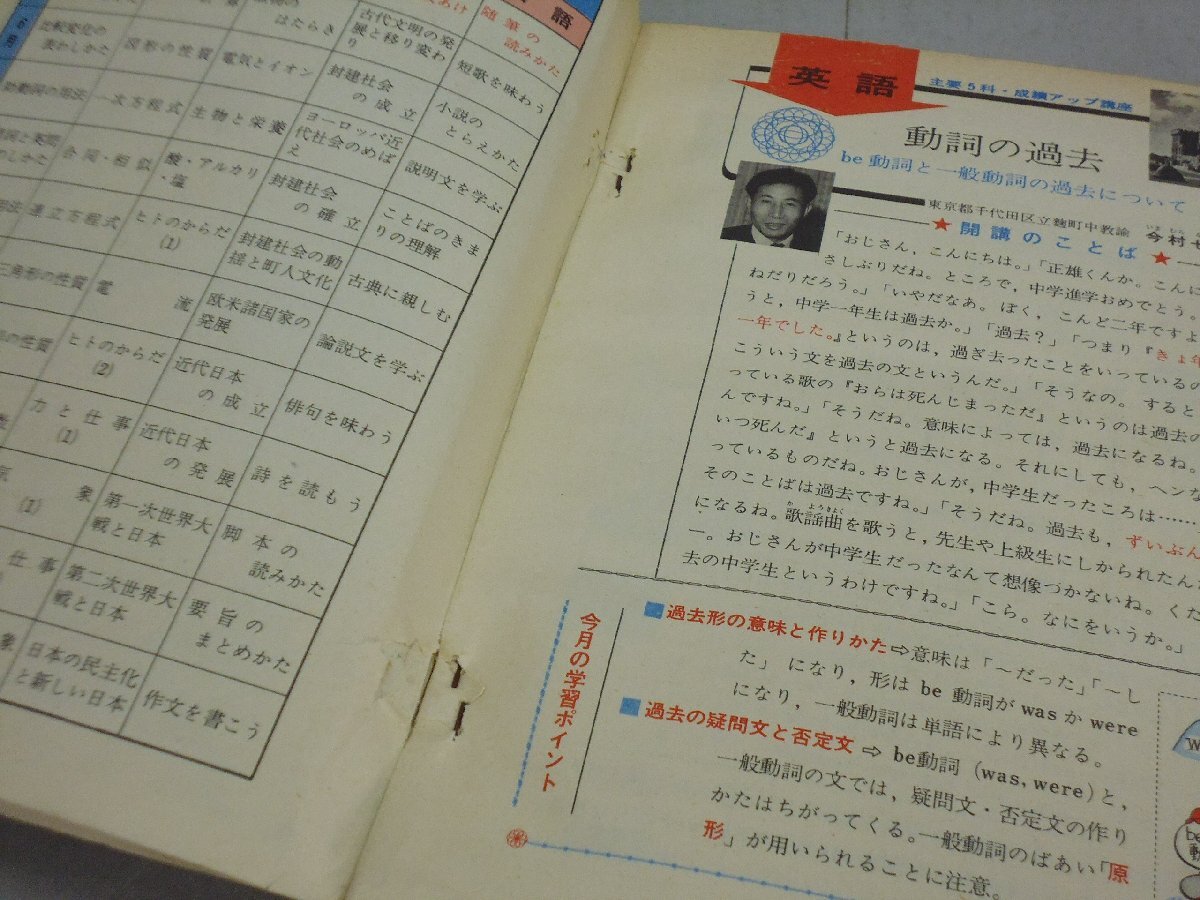 語
随筆の
読みかた
古代文明の発
展と移り変わ
り
はたらき
短歌を味わう
封建社会
の成立
電気とイオン
図形の性質
小説の
とらえかた
ヨーロッパ近
代社会のめば
え
生物と栄養
一次方程式
説明文を学ぶ
封建社会
の確立
酸・アルカリ
・塩
合同・相似
ことばのきま
りの理解
封建社会の動
揺と町人文化
ヒトのからだ
(1)
連立方程式
古典に親しむ
欧米諸国家の
発展
電流
三角形の性質
論説文を学ぶ
近代日本
の成立
ヒトのからだ
(2)
の性質
俳句を味わう
近代日本
の発展
力と仕事
(1)
詩を読もう
第一次世界大
戦と日本
象
(1)
脚本の
読みかた
第二次世界大
戦と日本
仕事
要旨の
まとめかた
日本の民主化
と新しい日本
象
作文を書こう
英語
主要5科・成績アップ講座
動詞の過去
be動詞と一般動詞の過去について
東京都千代田区立麹町中教諭 今村
★開講のことば★
「おじさん，こんにちは。」「正雄くんか。こんに
さしぶりだね。ところで，中学進学おめでとう。
ねだりだろう。」「いやだなあ。ぼく，こんど二年ですよ
うと，中学一年生は過去か。」「過去？」「つまり『きょ年
一年でした。』というのは，過ぎ去ったことをいっているの
こういう文を過去の文というんだ。」「そうなの。すると
っている歌の『おらは死んじまっただ』というのは過去の
んですね。」「そうだね。意味によっては，過去になるね。
いつ死んだ』というと過去になる。それにしても，ヘンな
っているものだね。おじさんが，中学生だったころは……
そのことばは過去ですね。」「そうだね。過去も，ずいぶん
になるね。歌謡曲を歌うと，先生や上級生にしかられたん
ー。おじさんが中学生だったなんて想像づかないね。くた
去の中学生というわけですね。」「こら。なにをいうか。」
今月の学習ポイント
過去形の意味と作りかた⇨意味は「〜だった」「〜し
た」になり，形は be 動詞が was か were
になり，一般動詞は単語により異なる。
過去の疑問文と否定文⇨ be動詞 (was, were) と，
一般動詞の文では，疑問文・否定文の作り
かたはちがってくる。一般動詞のばあい「原
形」が用いられることに注意。